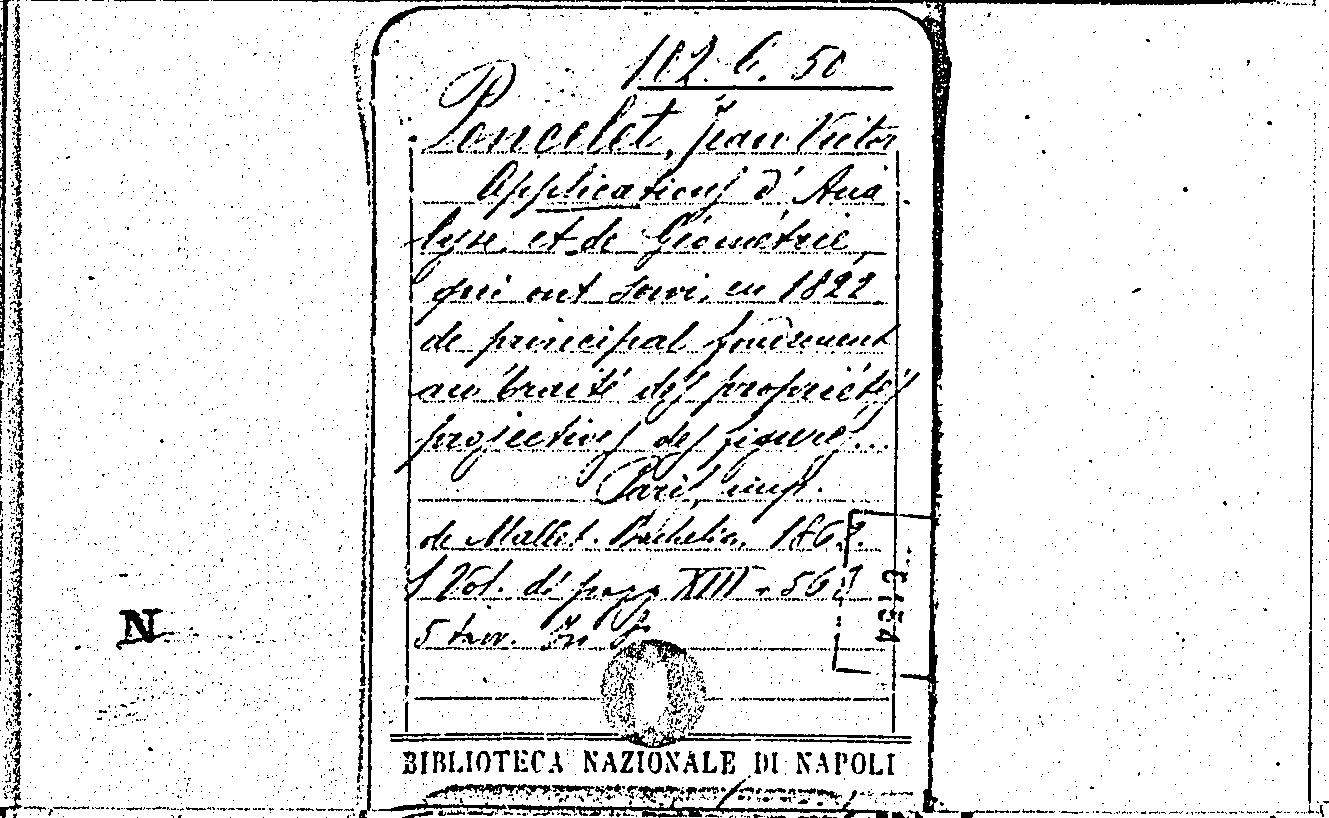 102. C. 50
Poncelet, Jean Victor
Applications d' Ana
lyse et de Géométrie,
qui ont servi, en 1822
de principal fondement
au traité des propriétés
projectives des figures...
Paris, imp.
de Mallet-Bachelier, 1862.
1 Vol. di pagg XIII - 563
5 tav. In 8
N
BIBLIOTECA NAZIONALE DI NAPOLI